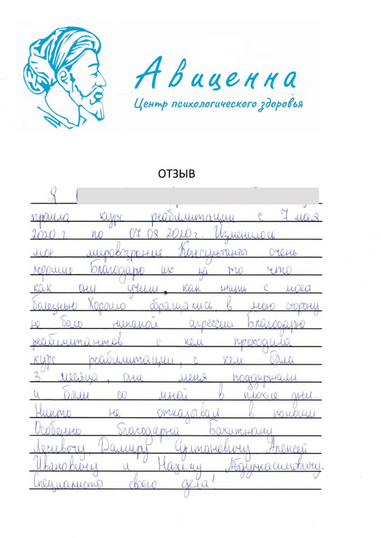 Авиценна
Центр психологического здоровья
ОТЗЫВ
Я
прошла курс реабилитации с 7 мая
2020 г по 07 08 2020 г. Изменилось
мое мировоззрение Консультанты очень
хорошие Благодарю их за то что
как они учили, как жить с моей
болезнью Хорошо обращались в мою сторону
не было никакой агрессии Благодарю
реабилитантов с кем проходила
курс реабилитации, с кем была
3 месяца, они меня поддержали
и были со мной в плохие дни.
Никто не отказывал в помощи
Особенно благодарна
Алексей
Ивановичу и
Специалисты своего дела!